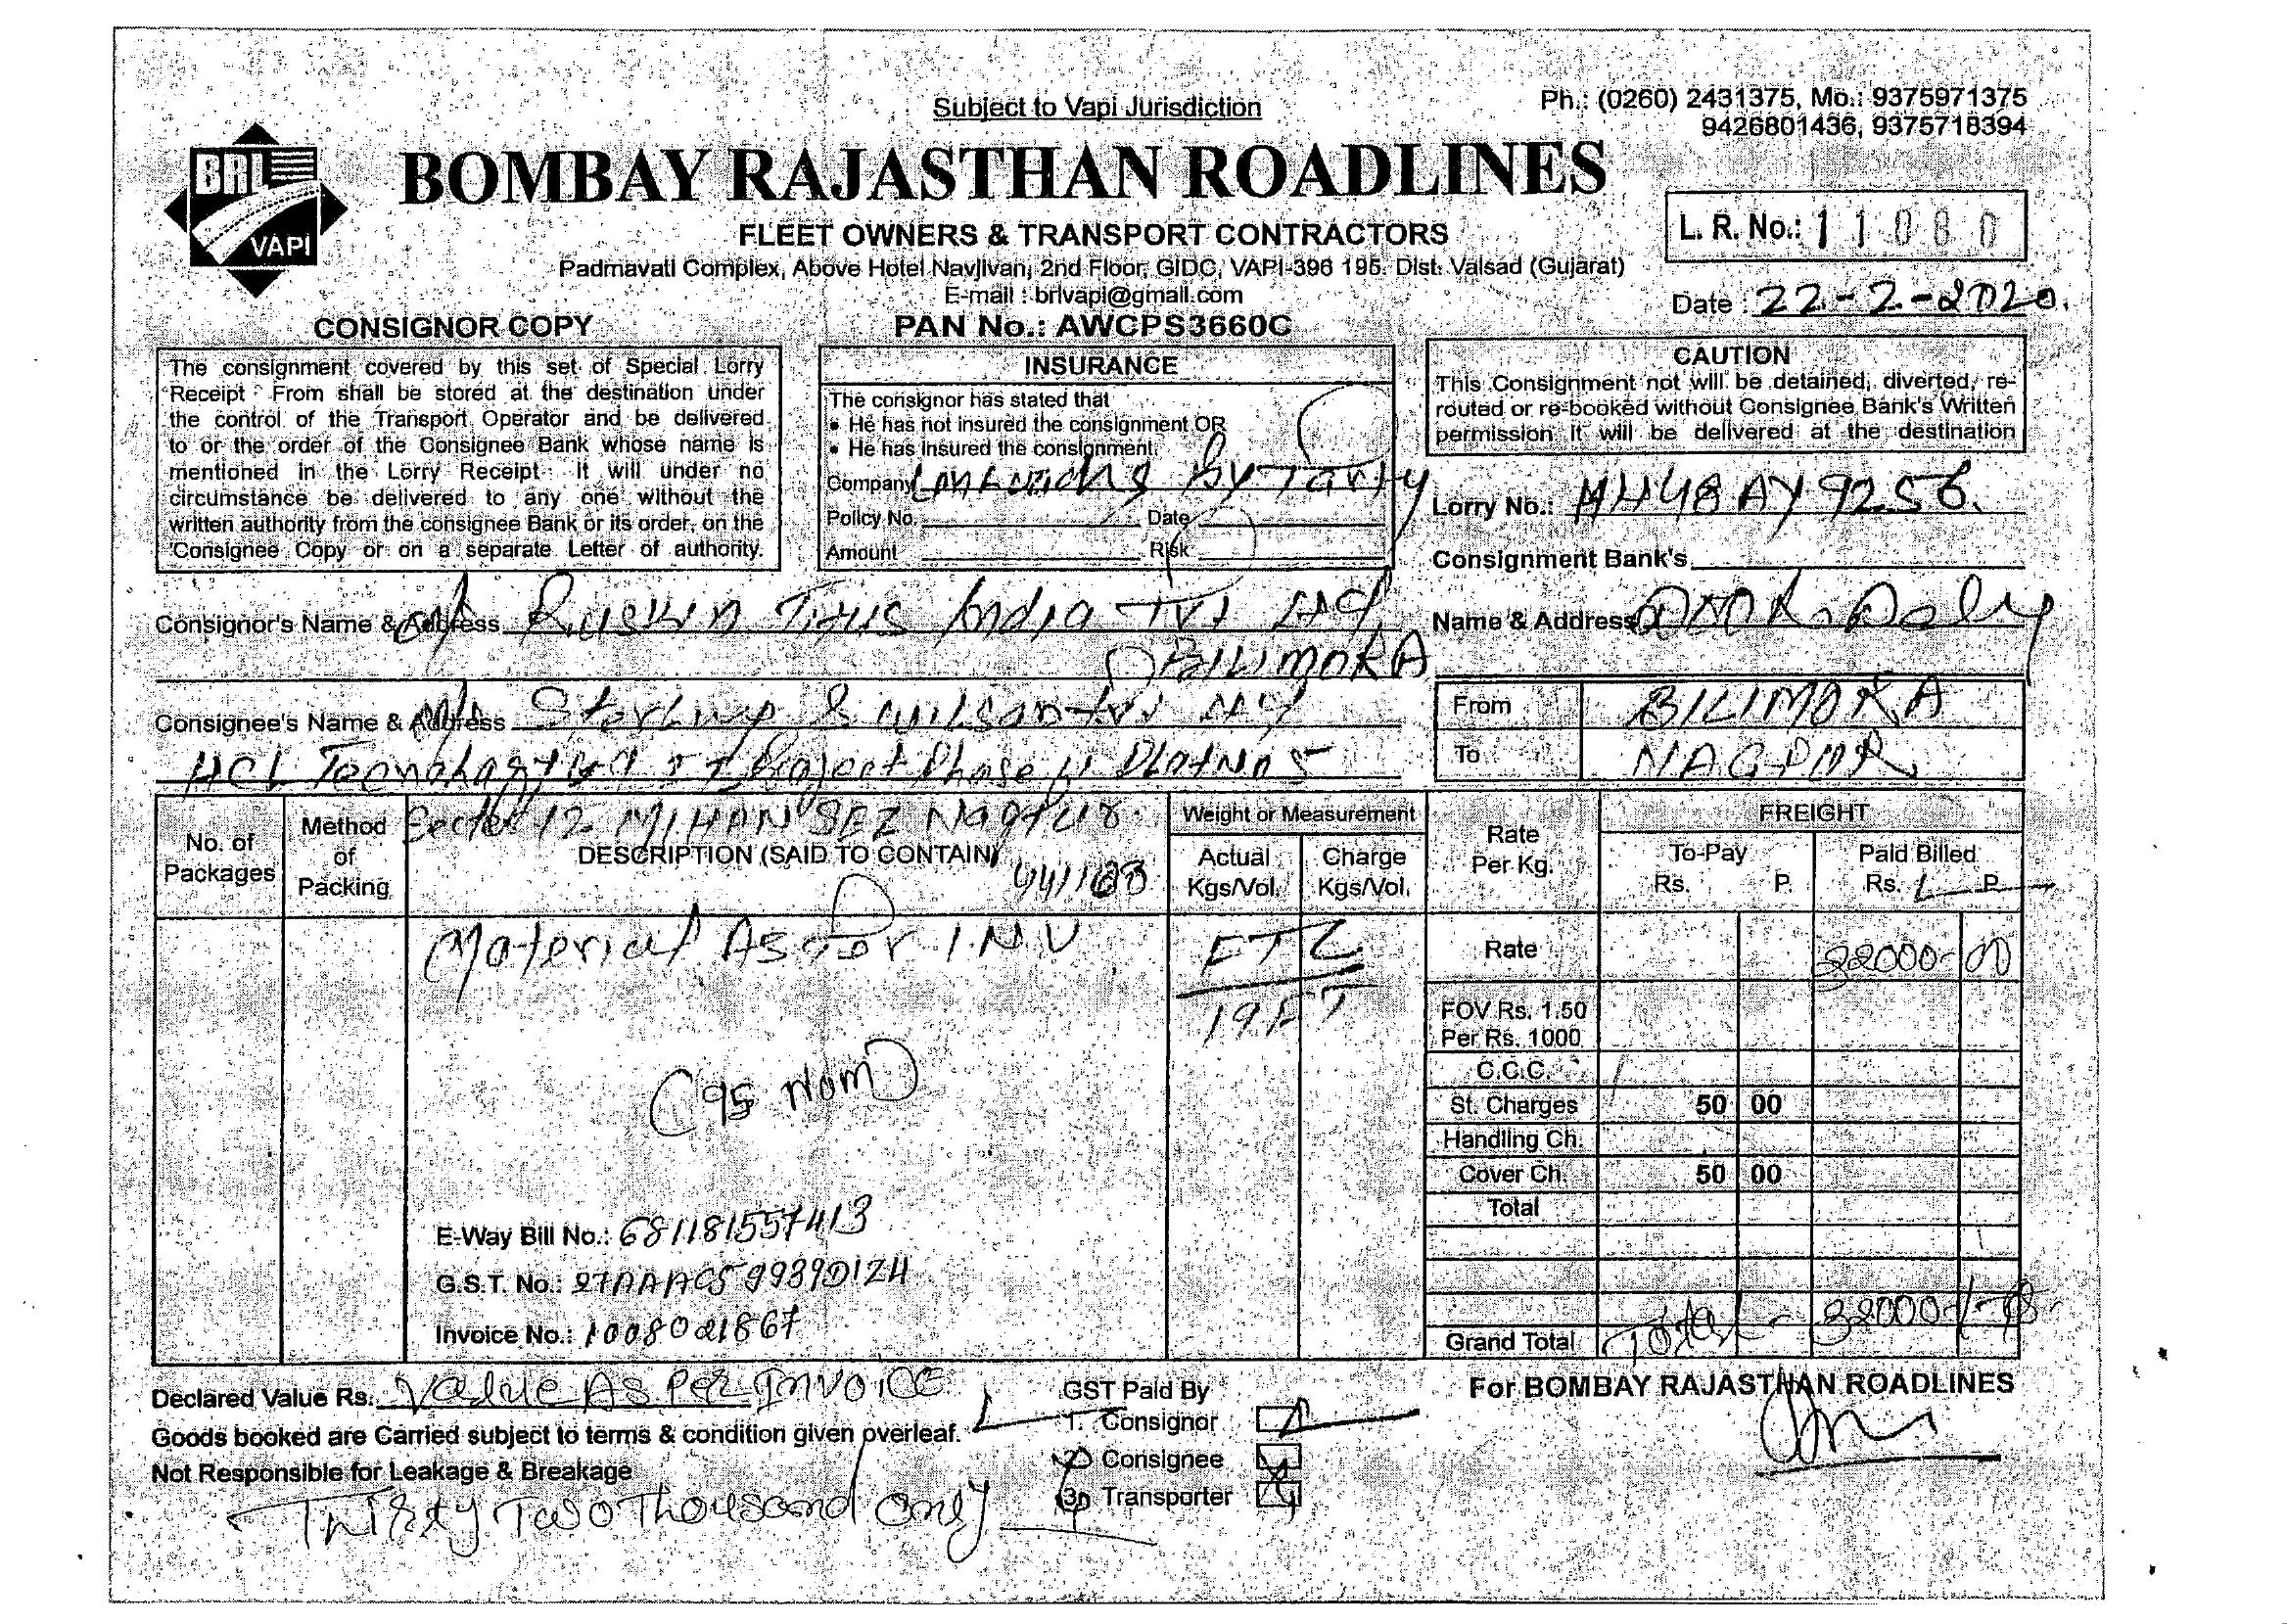 Subject to Vapi Jurisdiction
Ph.: (0260) 2431375, Mo.: 9375971375
9426801436, 9375718394
BRL
VAPI
BOMBAY RAJASTHAN ROADLINES
FLEET OWNERS & TRANSPORT CONTRACTORS
Padmavati Complex, Above Hotel Navjivan, 2nd Floor, GIDC, VAPI-396 195. Dist. Valsad (Gujarat)
E-mail : brlvapi@gmail.com
L. R. No.: 11080
Date : 22-2-2020.
CONSIGNOR COPY
PAN No.: AWCPS3660C
The consignment covered by this set of Special Lorry
Receipt From shall be stored at the destination under
the control of the Transport Operator and be delivered
to or the order of the Consignee Bank whose name is
mentioned in the Lorry Receipt It will under no
circumstance be delivered to any one without the
written authority from the consignee Bank or its order, on the
Consignee Copy or on a separate Letter of authority.
INSURANCE
The consignor has stated that
• He has not insured the consignment OR
• He has insured the consignment.
Company by Party
Policy No. Date
Amount Risk
CAUTION
This Consignment not will be detained, diverted, re-
routed or re-booked without Consignee Bank's Written
permission it will be delivered at the destination
Lorry No.: MH48AY9256.
Consignment Bank's
Name & Address Door Dely
Consignor's Name & Address Ruskin Titus India Pvt Ltd
BILIMORA
Consignee's Name & Address M/s Sterling & Wilson Pvt Ltd
HCL IT Project Phase Plot No 5
Sector 12 MIHAN SEZ Nagpur
From BILIMORA
To NAGPUR
No. of Packages
Method of Packing
DESCRIPTION (SAID TO CONTAIN)
Weight or Measurement
Actual Kgs/Vol.
Charge Kgs/Vol.
Rate Per Kg.
FREIGHT
To-Pay Rs. P.
Paid Billed Rs. P.
Material As Per INV
FTL
19FT
(95 Nom)
Rate 32000-00
FOV Rs. 1.50
Per Rs. 1000
C.C.C.
St. Charges 50 00
Handling Ch.
Cover Ch. 50 00
Total
Grand Total Total 32000/-
E-Way Bill No.: 681181557413
G.S.T. No.:
Invoice No.: 1008021867
Declared Value Rs. Value As Per Invoice
Goods booked are Carried subject to terms & condition given overleaf.
Not Responsible for Leakage & Breakage
Thirty Two Thousand Only
GST Paid By
1. Consignor
2. Consignee
3. Transporter
For BOMBAY RAJASTHAN ROADLINES